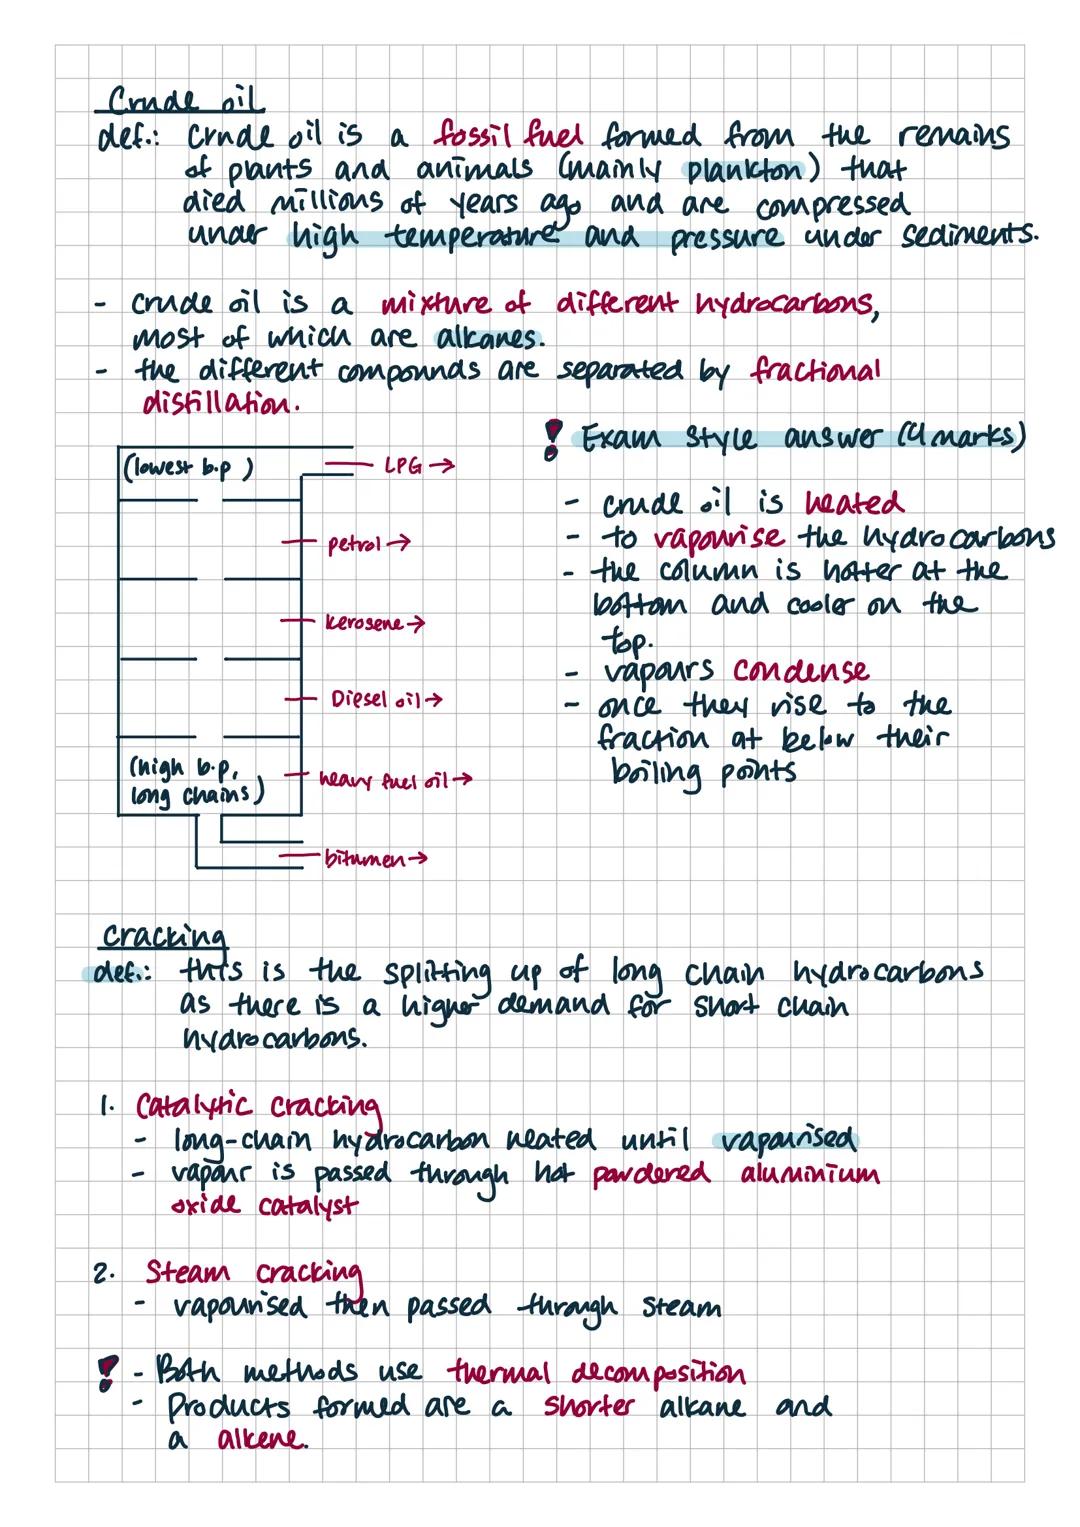 Crude oil
def.: Crude oil is a fossil fuel formed from the remains
of plants and animals (mainly plankton) that
died millions of years ago and are compressed
under high temperature and pressure under sediments.
- crude oil is a mixture of different hydrocarbons,
most of which are alkanes.
- the different compounds are separated by fractional
distillation.
(lowest b.p)
LPG →
petrol →
kerosene →
Diesel oil →
(high b.p,
long chains)
heavy fuel oil →
bitumen →
! Exam style answer (4 marks)
- crude oil is heated
- to vapourise the hydrocarbons
- the column is hotter at the
bottom and cooler on the
top.
- vapours condense
- once they rise to the
fraction at below their
boiling points
Cracking
def.: this is the splitting up of long chain hydrocarbons
as there is a higher demand for short chain
hydrocarbons.
1. Catalytic cracking
- long-chain hydrocarbon heated until vapourised
- vapour is passed through hot powdered aluminium
oxide catalyst
2. Steam cracking
- vapourised then passed through steam
! - Both methods use thermal decomposition
- Products formed are a shorter alkane and
a alkene.